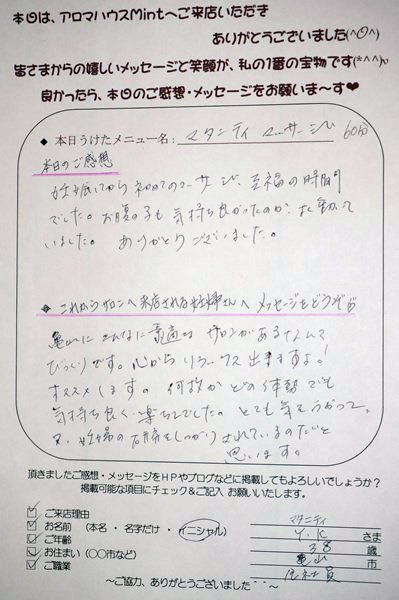 本日は、アロマハウスMintへご来店いただき
ありがとうございました(^O^)
皆さまからの嬉しいメッセージと笑顔が、私の1番の宝物です(*^^*)
良かったら、本日のご感想・メッセージをお願いま～す♥
◆ 本日うけたメニュー名: マタニティ マッサージ 60分
本日のご感想
妊娠してから初めてのマッサージ、至福の時間
でした。お腹の子も気持ち良かったのか、よく動いて
いました。ありがとうございました。
◆ これからサロンへ来店される妊婦さんへ メッセージをどうぞ
亀山にこんなに素適なサロンがあるなんて
びっくりです。心からリラックス出来ますよ!
オススメします。何故かどの体勢でも
気持ち良く、楽ちんでした。とても気をつかって
妊婦の をしっかりされているのだと
思います。
頂きましたご感想・メッセージをHPやブログなどに掲載してもよろしいでしょうか?
掲載可能な項目にチェック&ご記入 お願いいたします。
☑ ご来店理由 マタニティ
☑ お名前 (本名 ・ 名字だけ ・ イニシャル) Y.K さま
☑ ご年齢 38 歳
☑ お住まい (〇〇市など) 亀山 市
☑ ご職業 会社員
～ご協力、ありがとうございました～